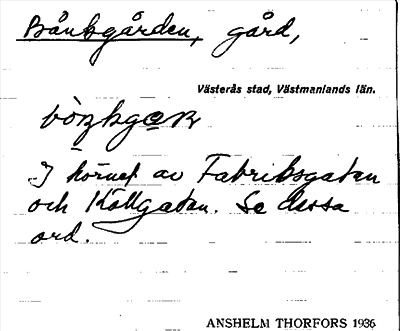 Bänkgården, gård,
Västerås stad, Västmanlands län.
I hörnet av Fabriksgatan
och Källgatan. Se dessa
ord.
ANSHELM THORFORS 1936